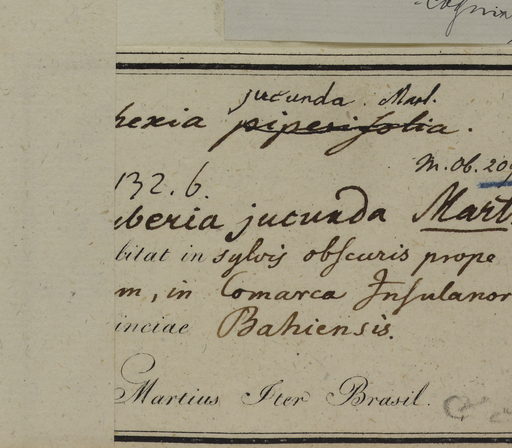 Cognia
jucunda. Mart.
hexia piperifolia.
M. Ob. 209
132.6
beria jucunda Mart.
bitat in sylvis obscuris prope
m, in Comarca Insulanor
inciae Bahiensis.
Martius Iter Brasil.